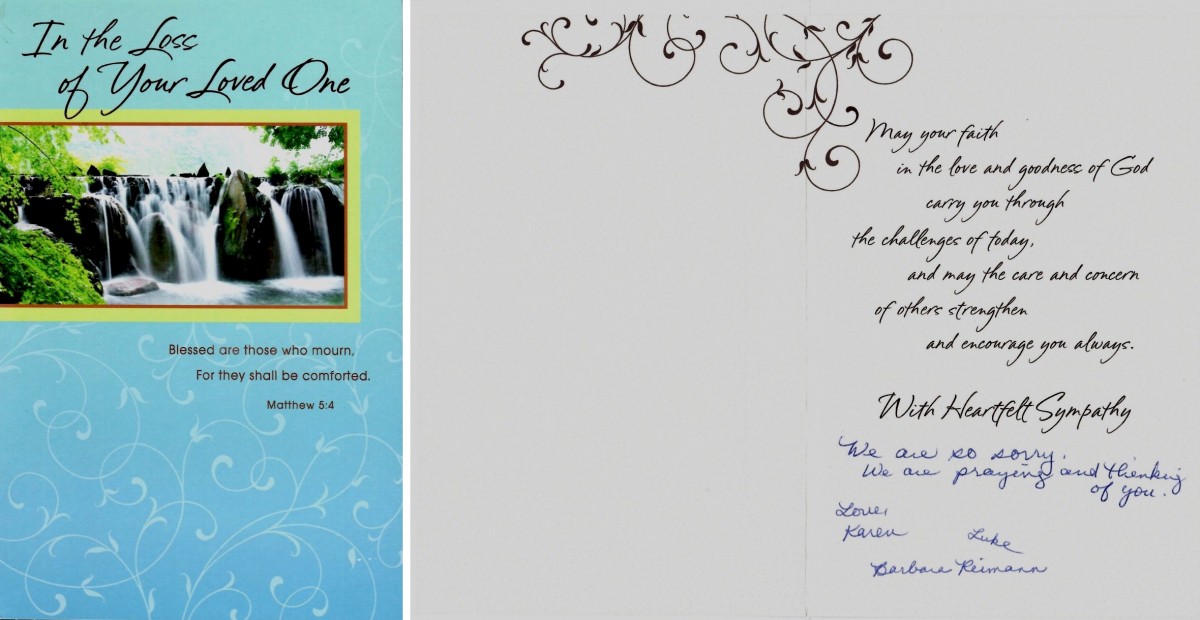 In the Loss
of Your Loved One
Blessed are those who mourn,
For they shall be comforted.
Matthew 5:4
May your faith
in the love and goodness of God
carry you through
the challenges of today,
and may the care and concern
of others strengthen
and encourage you always.
With Heartfelt Sympathy
We are so sorry.
We are praying and thinking
of you.
Love,
Karen
Luke
Barbara Reimann